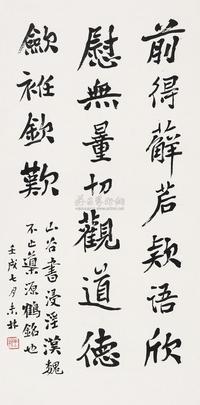 前得薜若欵語欣
慰無量切觀道德
歛衽欽歎
山谷書浸淫漢魏
不止藥源鶴銘也
壬戌七月